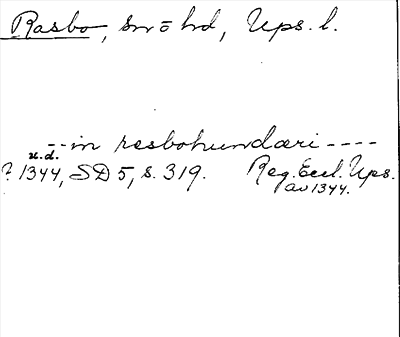 Rasbo, sn o hd, Ups. l.
--in resbohundæri ----
u.d.
? 1344, SD 5, s. 319. Reg. Eccl. Ups.
av 1344.